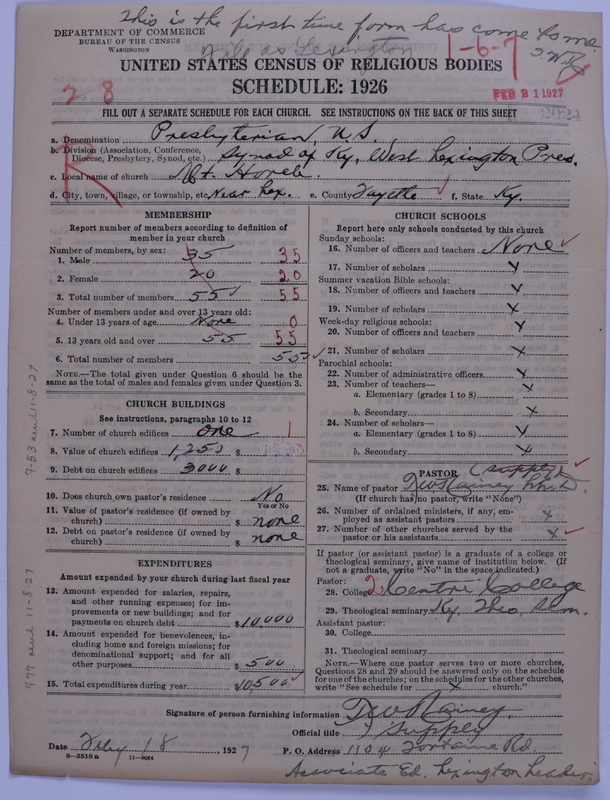 This is the first time form has come to me.
DEPARTMENT OF COMMERCE
BUREAU OF THE CENSUS
WASHINGTON
1-6-7
UNITED STATES CENSUS OF RELIGIOUS BODIES
SCHEDULE: 1926
FEB 21 1927
2 8
FILL OUT A SEPARATE SCHEDULE FOR EACH CHURCH. SEE INSTRUCTIONS ON THE BACK OF THIS SHEET
a. Denomination Presbyterian, U.S.
b. Division (Association, Conference, Diocese, Presbytery, Synod, etc.) Synod of Ky, West Lexington Pres.
c. Local name of church Mt. Horeb
d. City, town, village, or township, etc. Near Lex. e. County Fayette f. State Ky.
R
MEMBERSHIP
Report number of members according to definition of
member in your church
Number of members, by sex:
1. Male 35 35
2. Female 20 20
3. Total number of members 55 55
Number of members under and over 13 years old:
4. Under 13 years of age None 0
5. 13 years old and over 55 55
6. Total number of members 55
NOTE.—The total given under Question 6 should be
same as the total of males and females given under Question 3.
CHURCH BUILDINGS
See instructions, paragraphs 10 to 12
7. Number of church edifices one 1
8. Value of church edifices $
9. Debt on church edifices 3000 $
10. Does church own pastor's residence No
Yes or No
11. Value of pastor's residence (if owned by
church) $ none
12. Debt on pastor's residence (if owned by
church) $ none
EXPENDITURES
Amount expended by your church during last fiscal year
13. Amount expended for salaries, repairs,
and other running expenses; for im-
provements or new buildings; and for
payments on church debt $10,000
14. Amount expended for benevolences, in-
cluding home and foreign missions; for
denominational support; and for all
other purposes $ 500
15. Total expenditures during year $10,500
CHURCH SCHOOLS
Report here only schools conducted by this church
Sunday schools:
16. Number of officers and teachers None
17. Number of scholars x
Summer vacation Bible schools:
18. Number of officers and teachers x
19. Number of scholars x
Week-day religious schools:
20. Number of officers and teachers x
21. Number of scholars x
Parochial schools:
22. Number of administrative officers x
23. Number of teachers—
a. Elementary (grades 1 to 8) x
b. Secondary x
24. Number of scholars—
a. Elementary (grades 1 to 8) x
b. Secondary x
PASTOR (supply)
25. Name of pastor Rainey
(If church has no pastor, write "None")
26. Number of ordained ministers, if any, em-
ployed as assistant pastors x
27. Number of other churches served by the
pastor or his assistants x
If pastor (or assistant pastor) is a graduate of a college or
theological seminary, give name of institution below. (If
not a graduate, write "No" in the space indicated.)
Pastor:
28. College 2 Centre College
29. Theological seminary Ky. Theo. Sem.
Assistant pastor:
30. College
31. Theological seminary
NOTE.—Where one pastor serves two or more churches,
Questions 28 and 29 should be answered only on the schedule
for one of the churches; on the schedules for the other churches,
write "See schedule for x church."
Signature of person furnishing information Rainey
Official title Supply
Date Feby 18, 1927 P. O. Address 1104 Fontaine Rd.
8-5518 a 11-9034
Associate Ed. Lexington Leader.
7-53 11-8-27
11-8-27